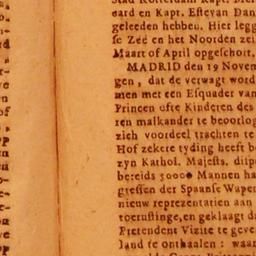 Stad Rotterdam Kapt.
eard en Kapt. Estevan Dan
geleeden hebben. Hier legg
se Zee en het Noorden zei
Maart of April opgeschort.
MADRID den 19 Novem
gen, dat de verwagt word
men met een Esquader van
Princen ofte Kinderen des
ren malkander te beoorlog
zich voordeel trachten te
Hof zekere tyding heeft be
zyn Kathol. Majests. disp
bereids 50000 Mannen ha
gressen der Spaanse Wapen
nieuw reprezentatien aan
toerustinge, en geklaagt da
Pretendent Vizite te geve
land te onthaalen: waar